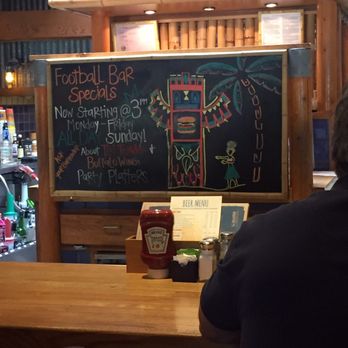 Football Bar
Specials
Now Starting @ 3pm
Monday - Friday
ALL Sunday!
Ask
About
Buffalo Wings &
Party Platters
BEER MENU
HEINZ